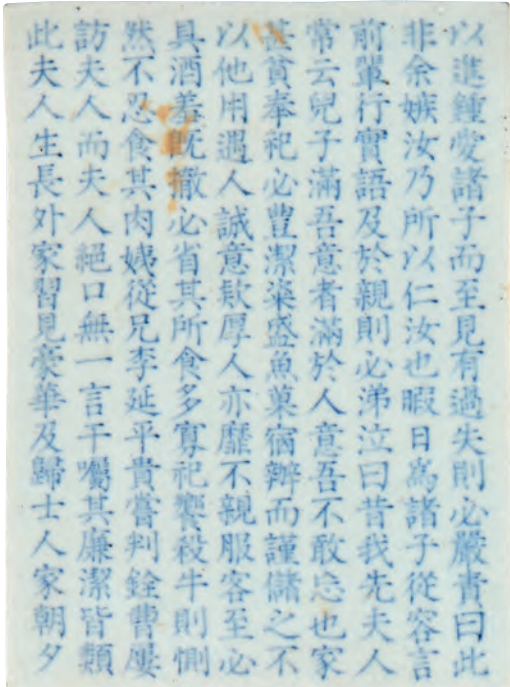 以進鍾愛諸子而至見有過失則必嚴責曰此
非余嫉汝乃所以仁汝也暇日爲諸子從容言
前輩行實語及於親則必涕泣曰昔我先夫人
常云兒子滿吾意者滿於人意吾不敢忘也家
甚貧奉祀必豊潔粢盛魚菓宿辦而謹儲之不
以他用遇人誠意欵厚人亦靡不親服客至必
具酒羞旣撤必省其所食多寡祀饗殺牛則惻
然不忍食其肉姨從兄李延平貴嘗判銓曹屢
訪夫人而夫人絕口無一言干囑其廉潔皆類
此夫人生長外家習見豪華及歸士人家朝夕